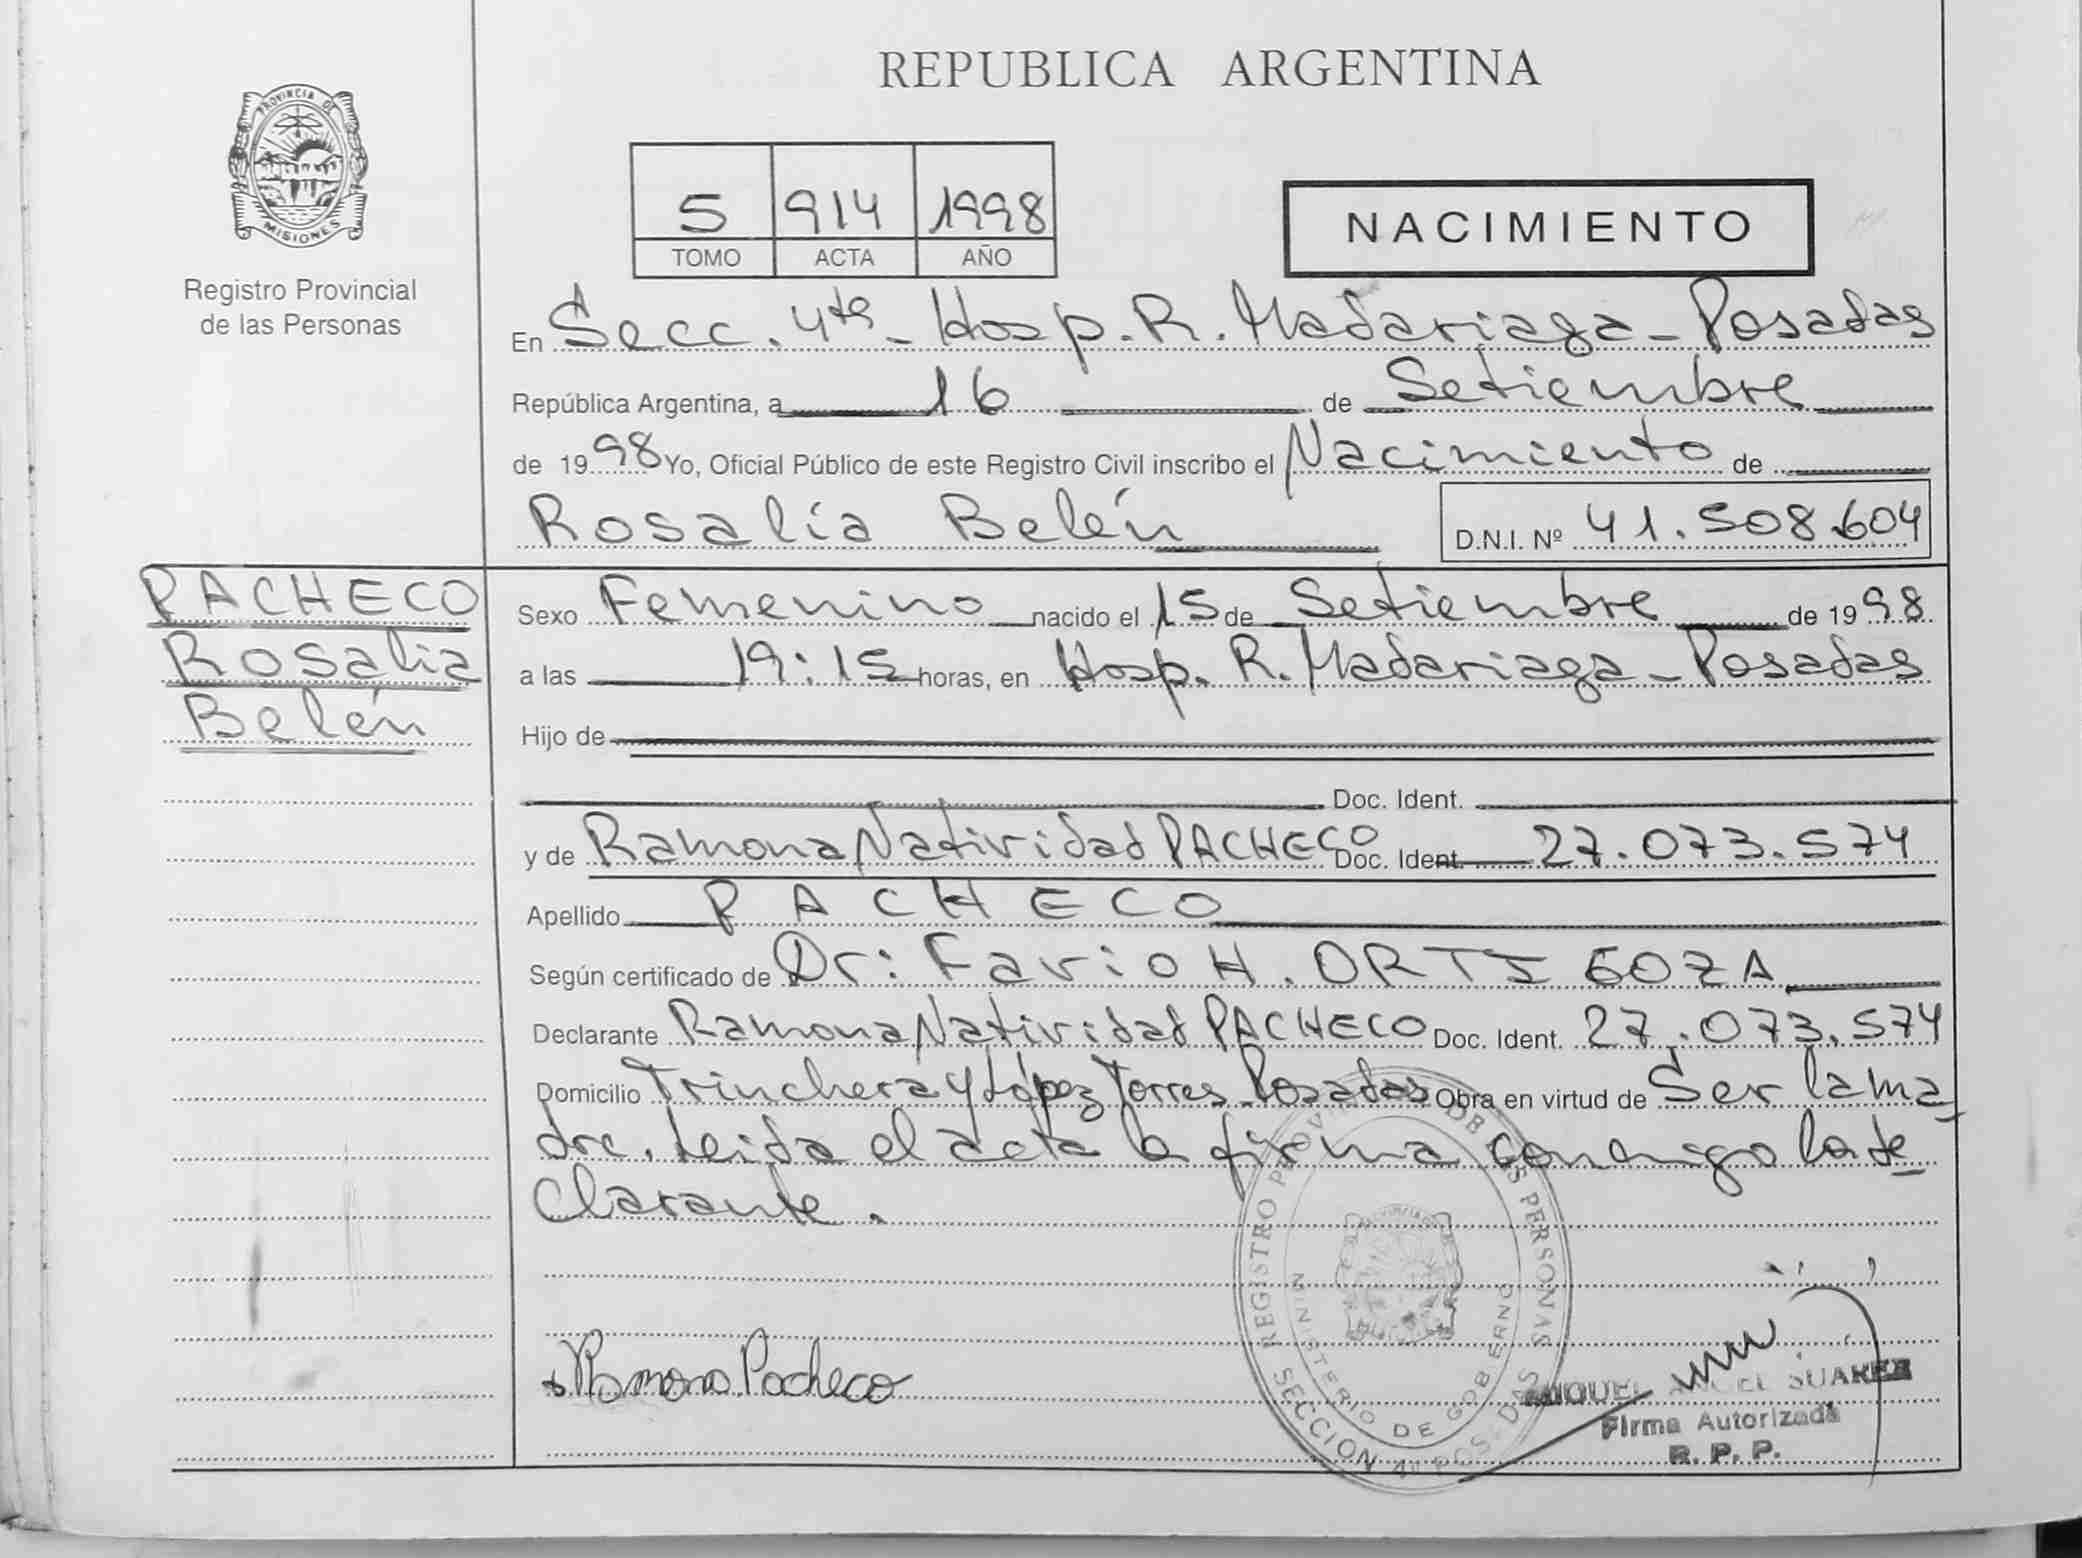 REPUBLICA ARGENTINA
PROVINCIA DE
MISIONES
Registro Provincial
de las Personas
5 914 1998
TOMO ACTA AÑO
NACIMIENTO
En Secc. 4ta - Hosp. R. Madariaga - Posadas
República Argentina, a 16 de Setiembre
de 1998 Yo, Oficial Público de este Registro Civil inscribo el Nacimiento de
Rosalía Belén D.N.I. Nº 41.508.604
PACHECO
Rosalia
Belén
Sexo Femenino nacido el 15 de Setiembre de 1998
a las 19:15 horas, en Hosp. R. Madariaga - Posadas
Hijo de
Doc. Ident.
y de Ramona Natividad PACHECO Doc. Ident. 27.073.574
Apellido PACHECO
Según certificado de Dr: Favio H. ORTIGOZA
Declarante Ramona Natividad PACHECO Doc. Ident. 27.073.574
Domicilio Trinchera y López Torres - Posadas Obra en virtud de Ser la ma
dre. Leida el acta la firma conmigo la de
clarante.
REGISTRO PROVINCIAL DE LAS PERSONAS
MINISTERIO DE GOBIERNO
SECCION 4ta POSADAS
Ramona Pacheco
MIGUEL ANGEL SUAREZ
Firma Autorizada
R. P. P.